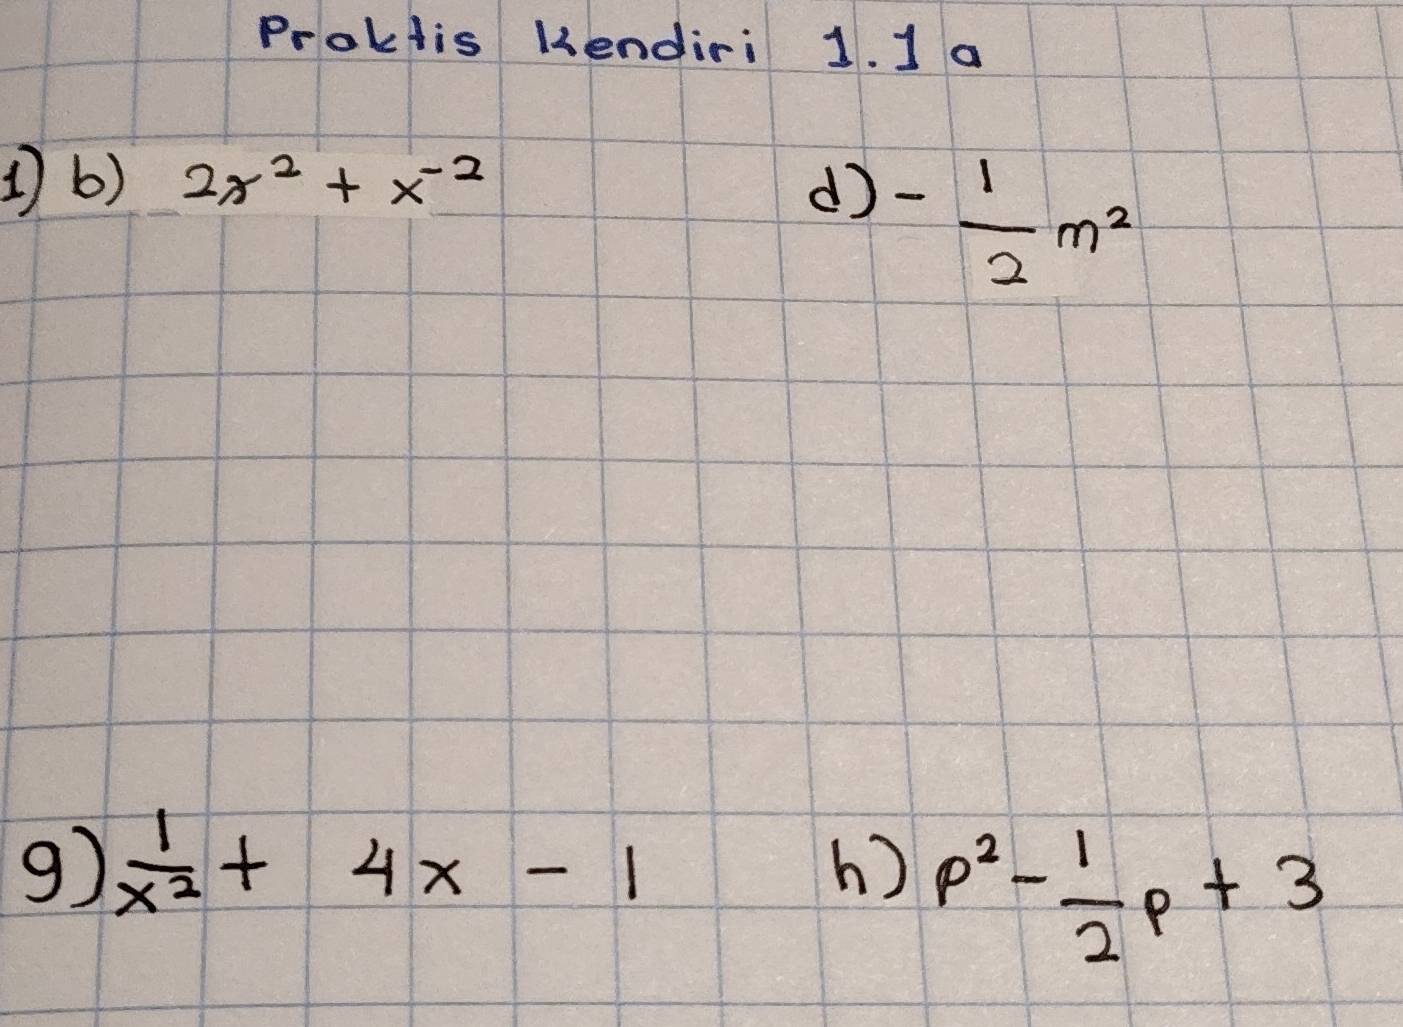 Praktis Kendiri 1.1 a
1) b) 2x² + x⁻²
d) - 1/2 m²
g) 1/x² + 4x - 1
h) p² - 1/2 p + 3